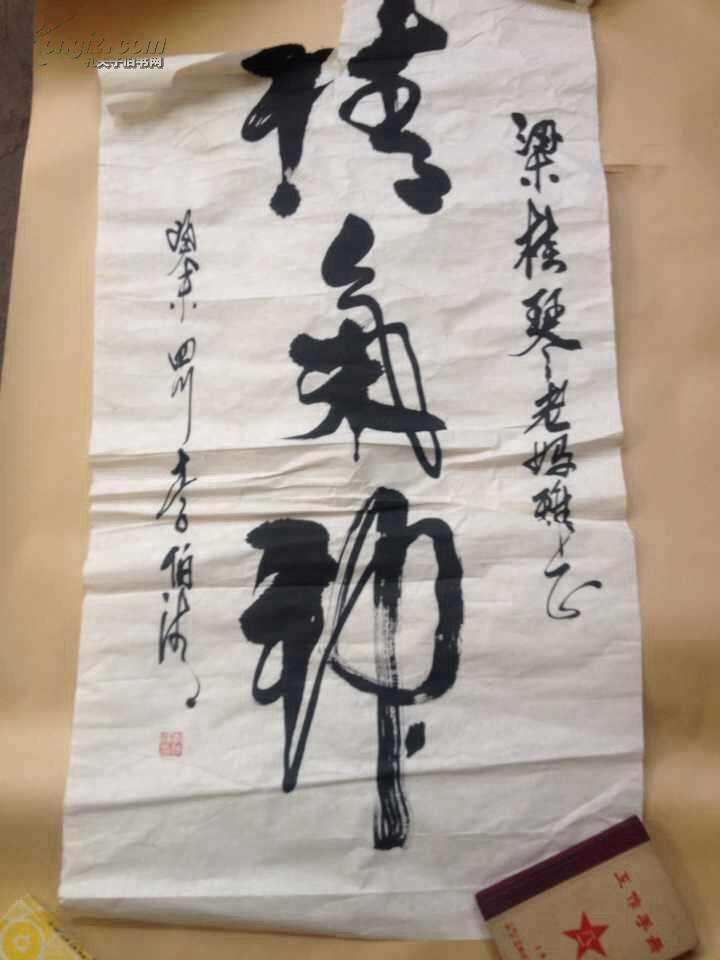 梁桂琴老妈雅正
精氣神
癸未 四川 李伯清
工作手册
kongfz.com
孔夫子旧书网